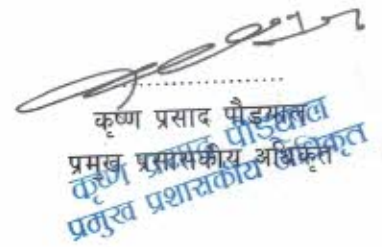 कृष्ण प्रसाद पौड्याल
प्रमुख प्रसासकीय अधिकृत
कृष्ण प्रसाद पौड्याल
प्रमुख प्रशासकीय अधिकृत